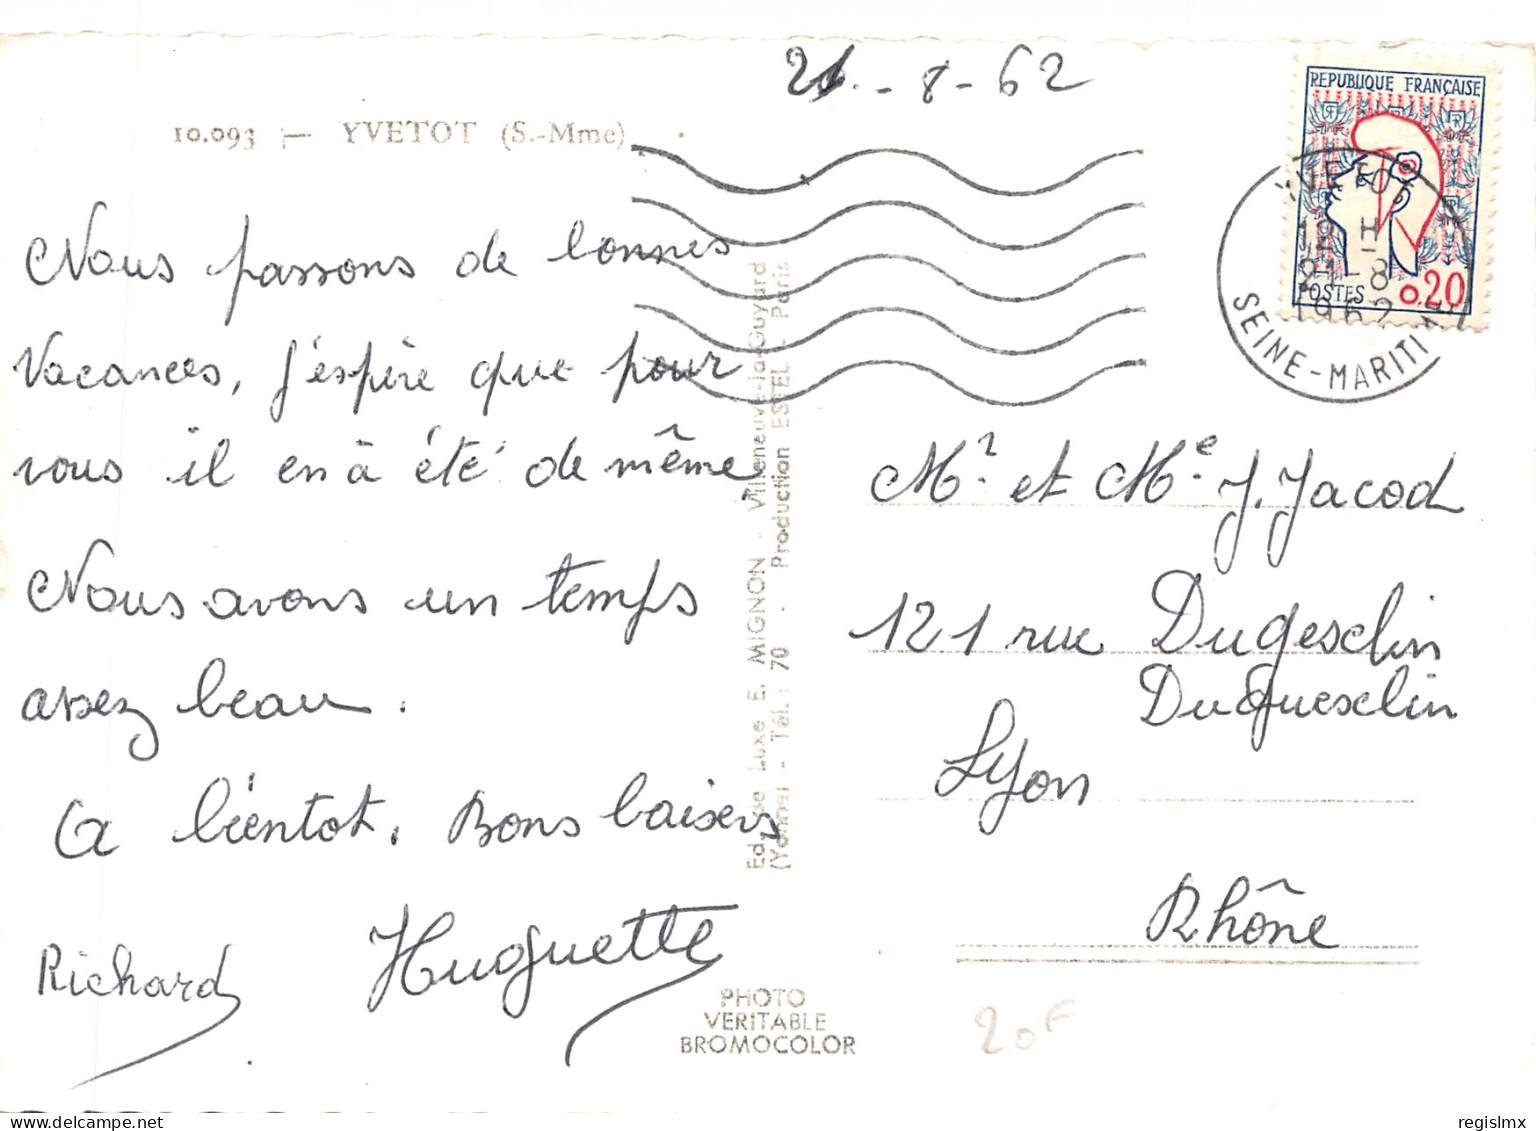 21-8-62
10.093 — YVETOT (S.-Mme)
Nous passons de bonnes
Vacances, j'éspère que pour
vous il en à été de même
Nous avons un temps
assez beau.
A biéntot. Bons baisers
Richard Huguette
REPUBLIQUE FRANÇAISE
POSTES 0,20
YVETOT
18 H
21-8
1962
SEINE-MARITIME
Mr et Me J. Jacod
121 rue Dugesclin
Duguesclin
Lyon
Rhône
Luxe E. MIGNON - Villeneuve-la-Guyard
(Yonne) - Tél. : 70 - Production ESTEL - Paris
PHOTO
VERITABLE
BROMOCOLOR
20F
regislmx
delcampe.net